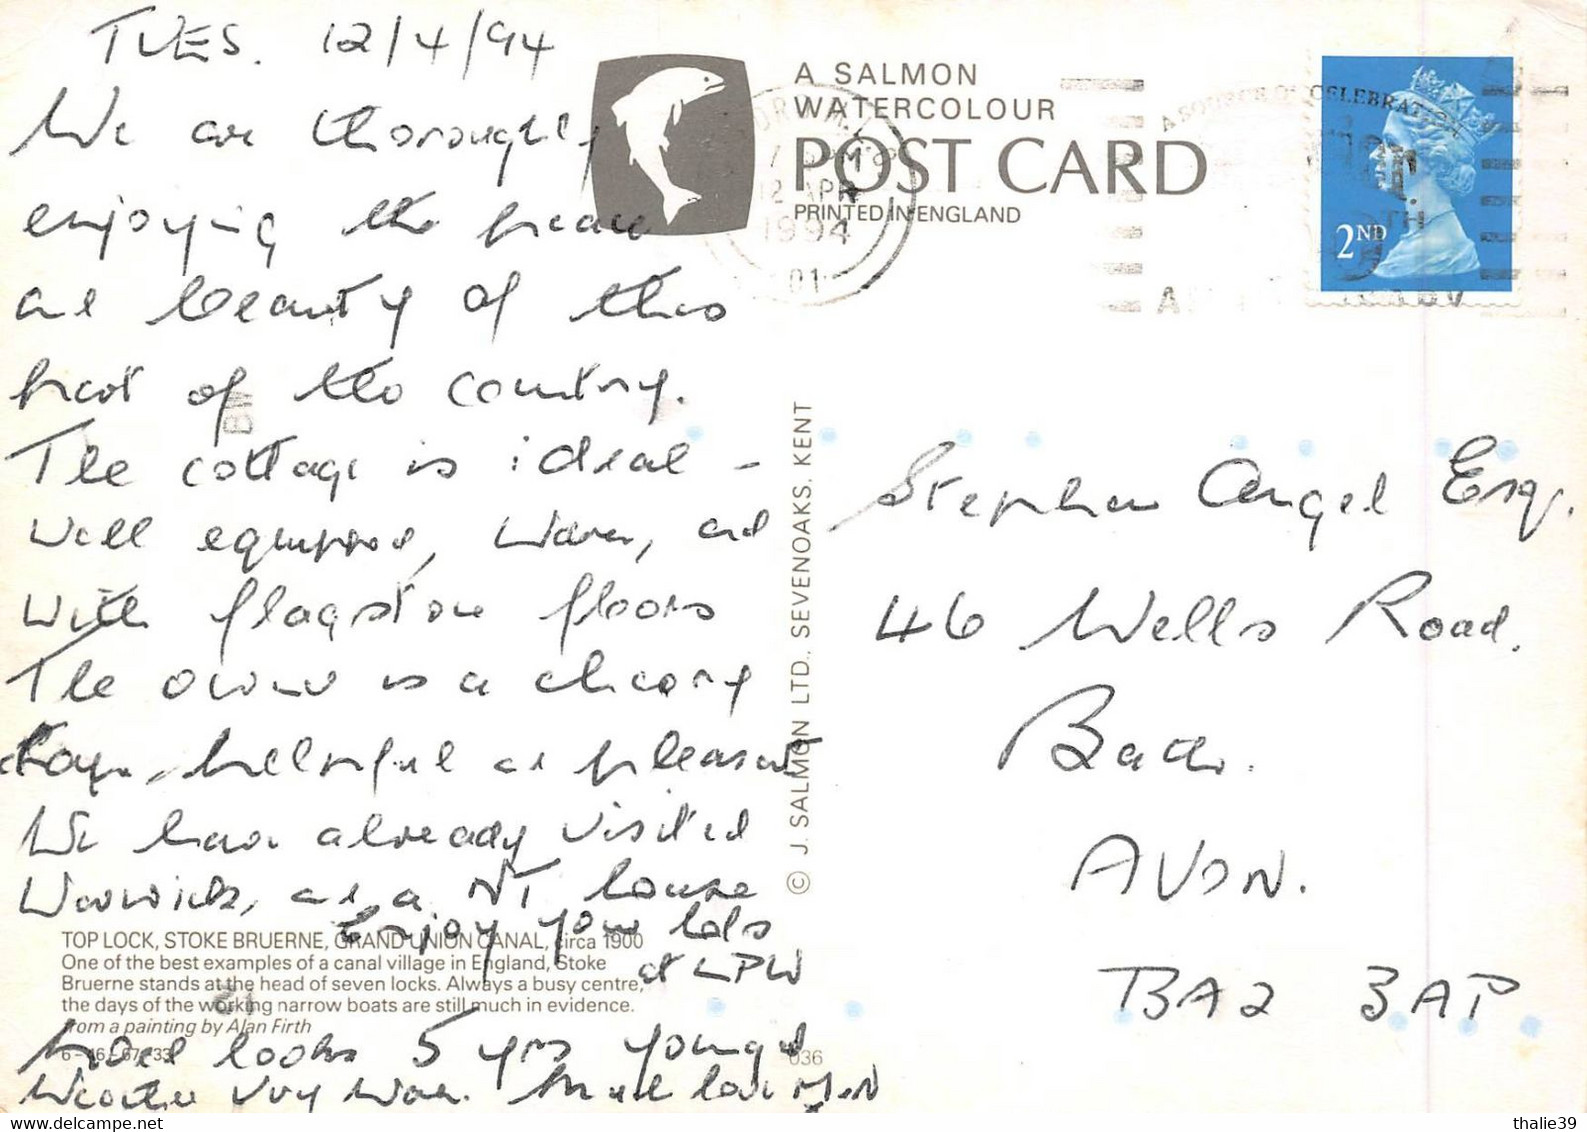 TUES. 12/4/94
We are thoroughly
enjoying the peace
and beauty of this
part of the country.
The cottage is ideal -
well equipped, warm, and
with flagstone floors
The owner is a cheery
chap, helpful and pleasant
We have already visited
Warwick, and a NT house
Enjoy your hols
at LPW
looks 5 yrs younger
Weather very
A SALMON
WATERCOLOUR
POST CARD
PRINTED IN ENGLAND
12 APR
1994
01
CELEBRATION
2ND
© J. SALMON LTD., SEVENOAKS, KENT
Stephen Angel Esq.
46 Wells Road.
Bath.
AVON.
BA2 3AP
TOP LOCK, STOKE BRUERNE, GRAND UNION CANAL, circa 1900
One of the best examples of a canal village in England, Stoke
Bruerne stands at the head of seven locks. Always a busy centre,
the days of the working narrow boats are still much in evidence.
From a painting by Alan Firth
036
delcampe.net
thalie39